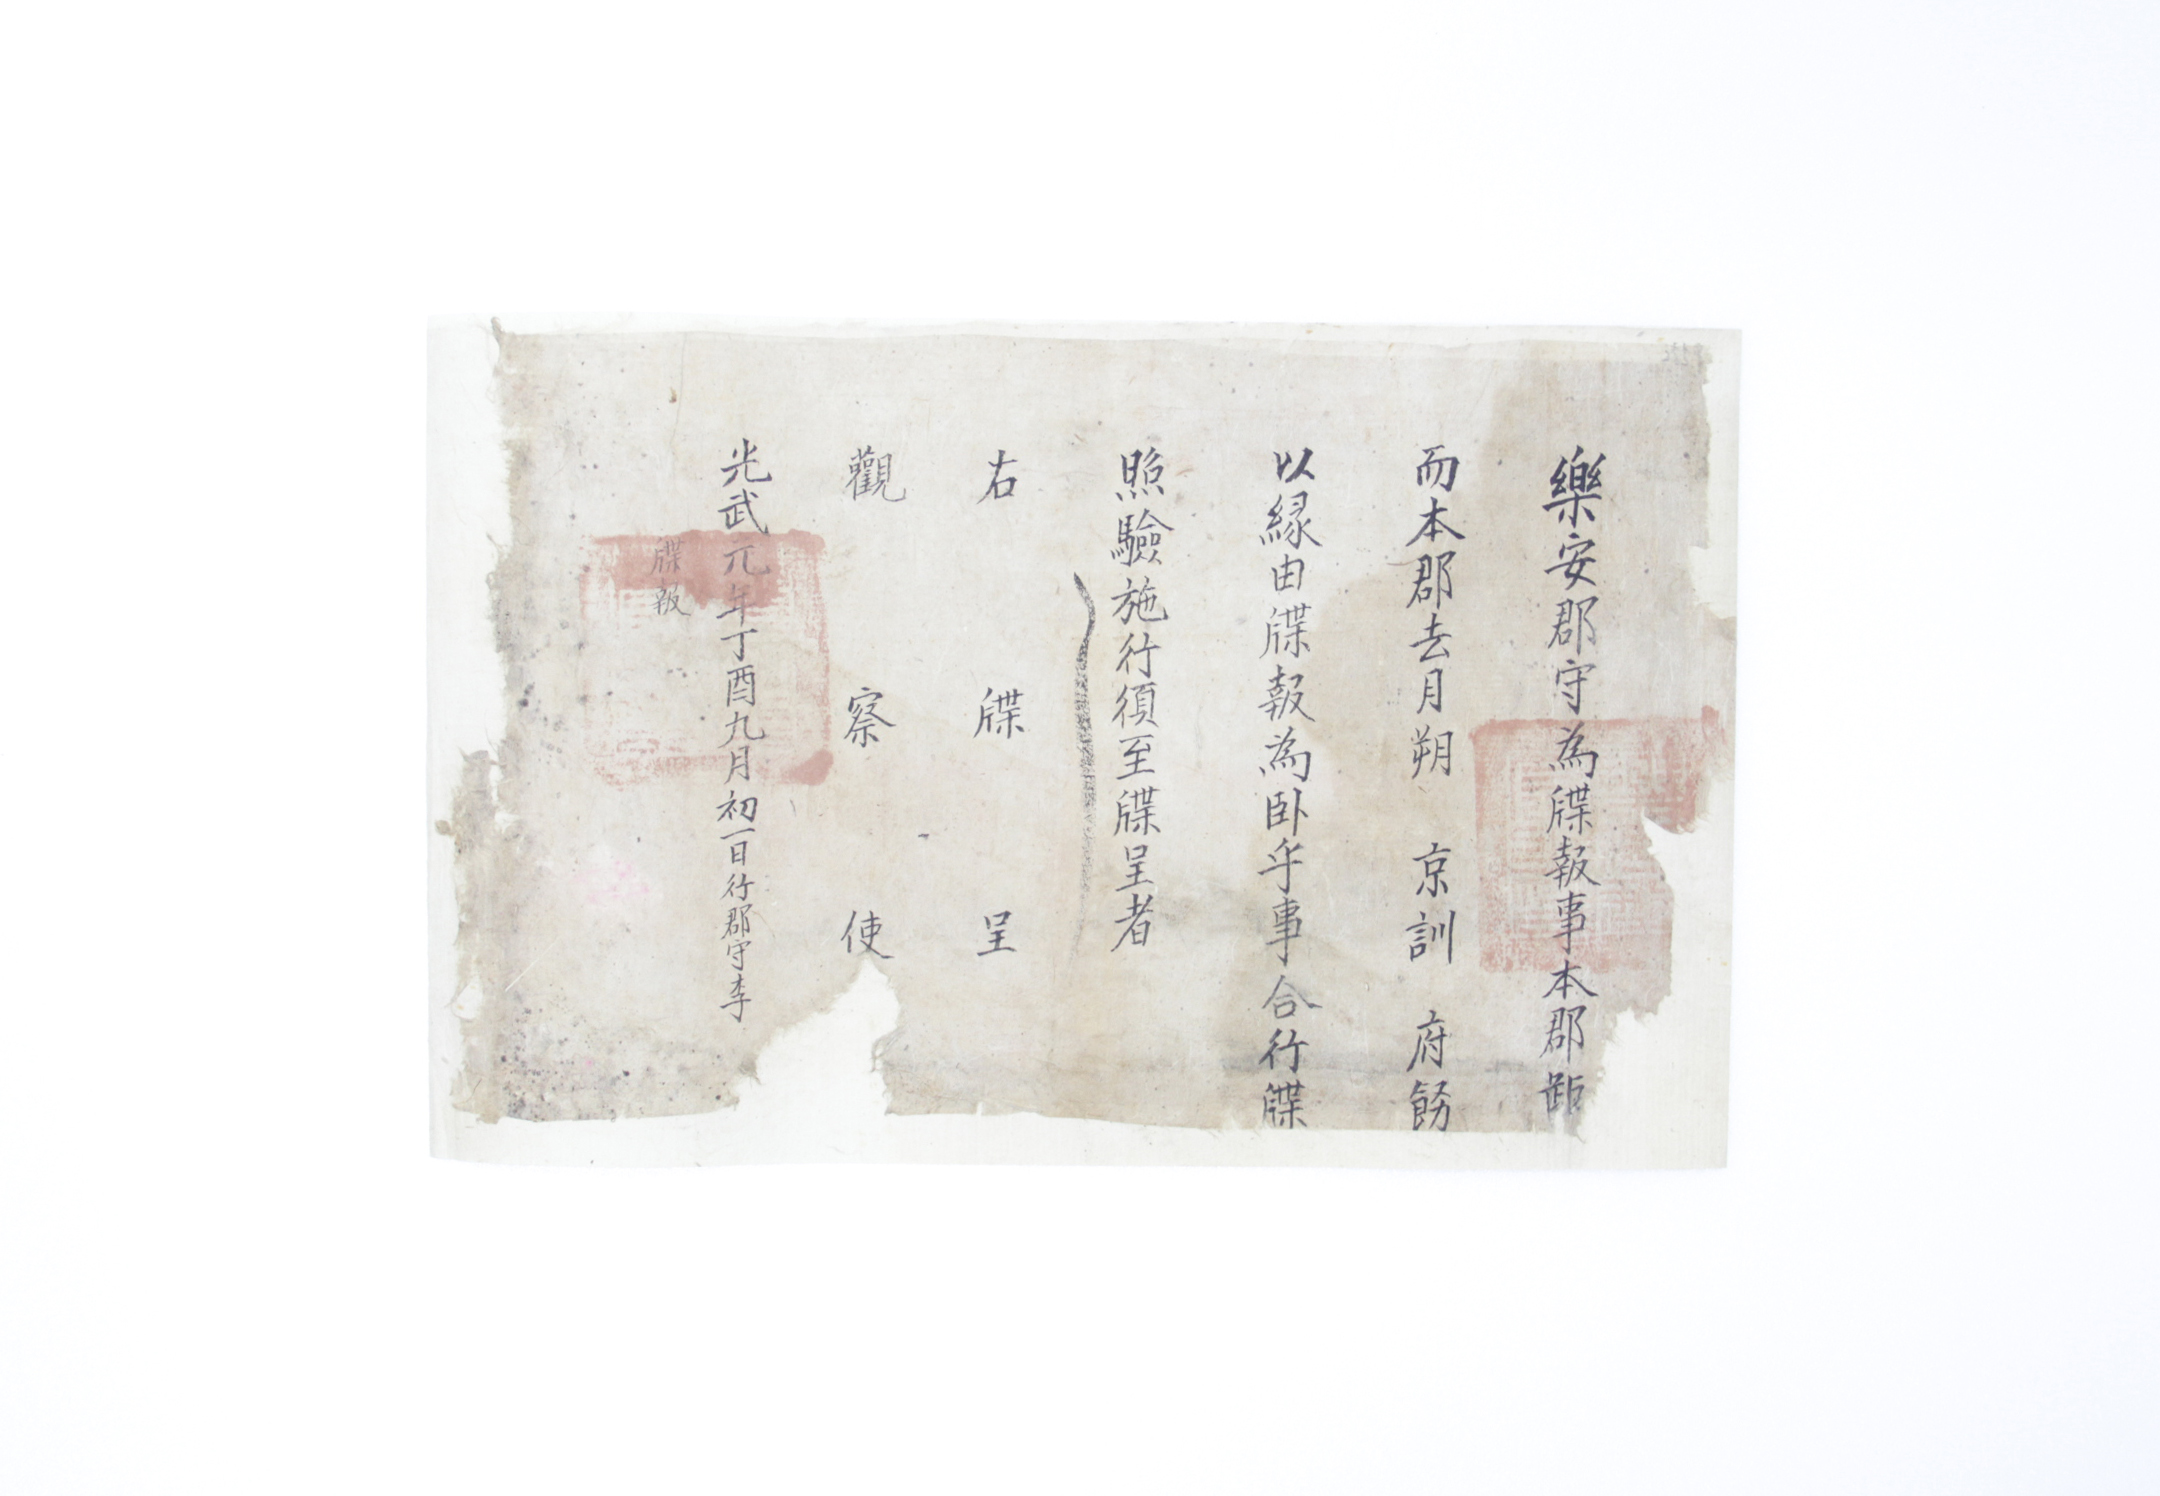 樂安郡守為牒報事本郡
而本郡去月朔 京訓 府飭
以緣由牒報為卧乎事合行牒
照驗施行須至牒呈者
右 牒 呈
觀 察 使
光武元年丁酉九月初一日行郡守李
牒報